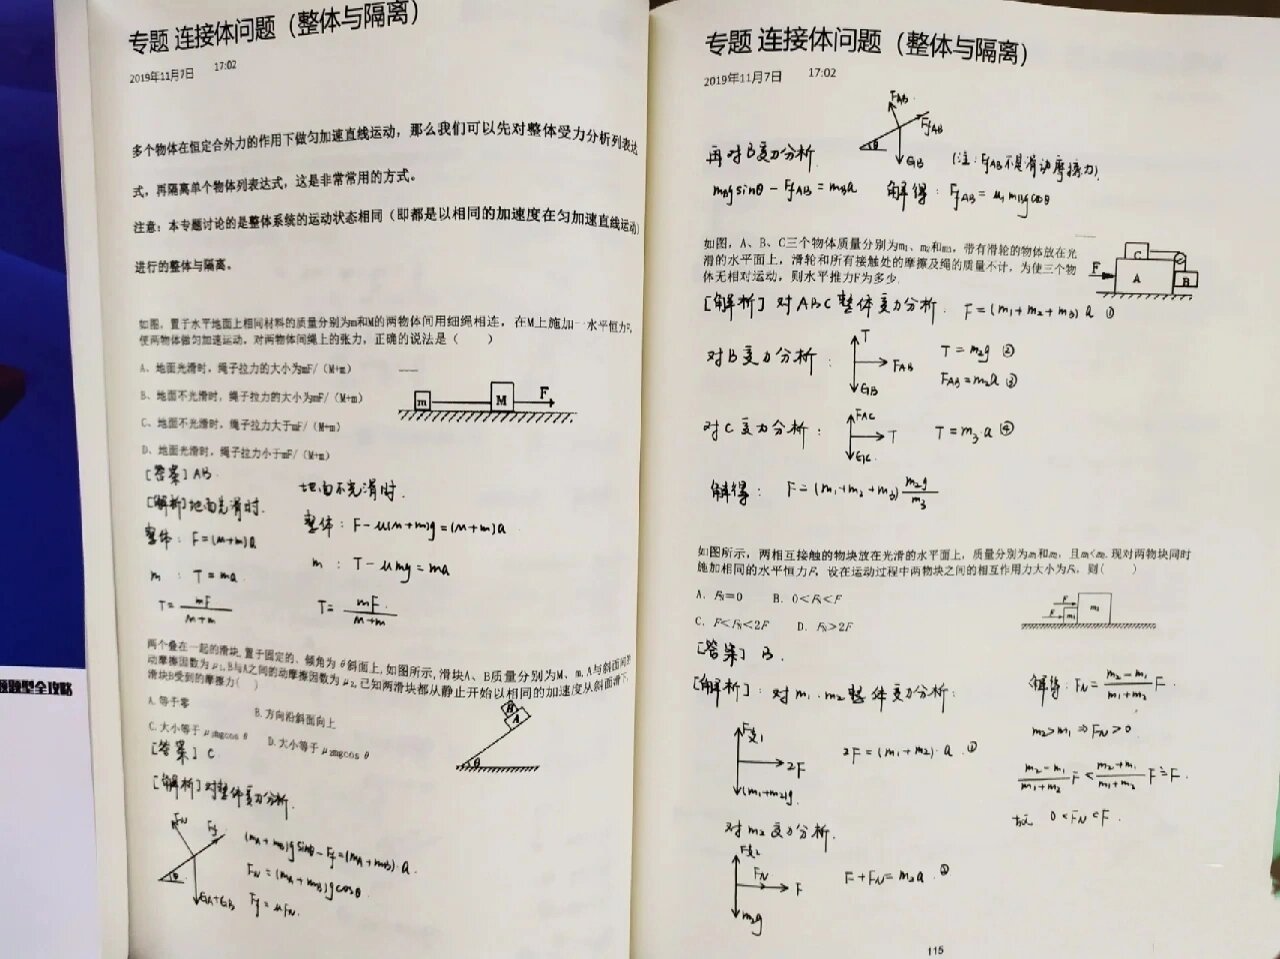 专题 连接体问题（整体与隔离）
2019年11月7日 17:02
多个物体在恒定合外力的作用下做匀加速直线运动，那么我们可以先对整体受力分析列表达
式，再隔离单个物体列表达式，这是非常常用的方式。
注意：本专题讨论的是整体系统的运动状态相同（即都是以相同的加速度在匀加速直线运动）
进行的整体与隔离。
如图，置于水平地面上相同材料的质量分别为m和M的两物体间用细绳相连，在M上施加一水平恒力F，
使两物体做匀加速运动，对两物体间绳上的张力，正确的说法是（ ）
A、地面光滑时，绳子拉力的大小为mF/（M+m）
B、地面不光滑时，绳子拉力的大小为mF/（M+m）
C、地面不光滑时，绳子拉力大于mF/（M+m）
D、地面光滑时，绳子拉力小于mF/（M+m）
m M F
[答案] AB
[解析] 地面光滑时. 地面不光滑时.
整体：F=(M+m)a 整体：F-μ(M+m)g=(M+m)a
m：T=ma m：T-μmg=ma
T=mF/(M+m) T=mF/(M+m)
两个叠在一起的滑块，置于固定的、倾角为θ斜面上，如图所示，滑块A、B质量分别为M、m，A与斜面间的
动摩擦因数为μ1，B与A之间的动摩擦因数为μ2，已知两滑块都从静止开始以相同的加速度从斜面滑下，
滑块B受到的摩擦力（ ）
A.等于零 B.方向沿斜面向上
C.大小等于μ1mgcosθ D.大小等于μ2mgcosθ
B A θ
[答案] C
[解析] 对整体受力分析.
FN Ff θ GA+GB
(mA+mB)gsinθ-Ff=(mA+mB)·a.
FN=(mA+mB)gcosθ
Ff=μFN.
专题 连接体问题（整体与隔离）
2019年11月7日 17:02
FAB FfAB θ GB
再对B受力分析. (注：FfAB不是滑动摩擦力).
mBgsinθ-FfAB=mBa 解得：FfAB=μ1mBgcosθ
如图，A、B、C三个物体质量分别为m1、m2和m3，带有滑轮的物体放在光
滑的水平面上，滑轮和所有接触处的摩擦及绳的质量不计，为使三个物
体无相对运动，则水平推力F为多少.
F C A B
[解析] 对ABC整体受力分析. F=(m1+m2+m3)a ①
对B受力分析： T FAB GB T=m2g ②
FAB=m2a ③
对C受力分析： FAC T GC T=m3·a ④
解得： F=(m1+m2+m3)m2g/m3
如图所示，两相互接触的物块放在光滑的水平面上，质量分别为m1和m2，且m1<m2.现对两物块同时
施加相同的水平恒力F，设在运动过程中两物块之间的相互作用力大小为FN，则（ ）
A. FN=0 B. 0<FN<F
C. F<FN<2F D. FN>2F
F F m1 m2
[答案] B.
[解析]：对m1、m2整体受力分析：
F支1 2F (m1+m2)g
2F=(m1+m2)·a ①
对m2受力分析.
F支2 FN F m2g
F+FN=m2a ②
解得：FN=(m2-m1)/(m1+m2)F.
m2>m1⇒FN>0.
(m2-m1)/(m1+m2)F<(m2+m1)/(m1+m2)F=F.
故 0<FN<F.
115
题型全攻略